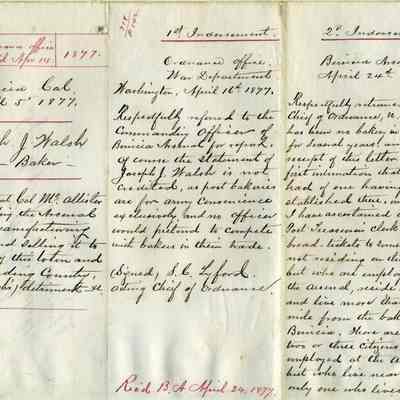 nance office
Apr 14 1877.
icia Cal.
l 5" 1877.
h J Walsh
Baker
Col Mc Allister
ing the Arsenal
anufacturing
and selling it to
of this town and
nding Country,
his) detriment - &c
1st Indorsement.
Ordnance Office.
War Department
Washington, April 16th 1877.
Respectfully referred to the
Commanding Officer of
Benicia Arsenal for report.
Of course the statement of
Joseph J. Walsh is not
credited, as post bakeries
are for army convenience
exclusively, and no officer
would pretend to compete
with bakers in their trade.
(Signed) S. C. Lyford.
acting Chief of Ordnance.
Rec'd B. A April 24, 1877.
2d Indorsem
Benicia Arse
April 24th
Respectfully returne
Chief of Ordnance, U.
has been no bakery in
for several years! and
receipt of this letter
first intimation that
had of one having
established there, in
I have ascertained
Post Treasurer clerk
bread tickets to some
not residing on the
but who are employ
the Arsenal, reside
and live more than
mile from the bak
Benicia. There are
two or three citizens
employed at the A
but who live near
only one who lives